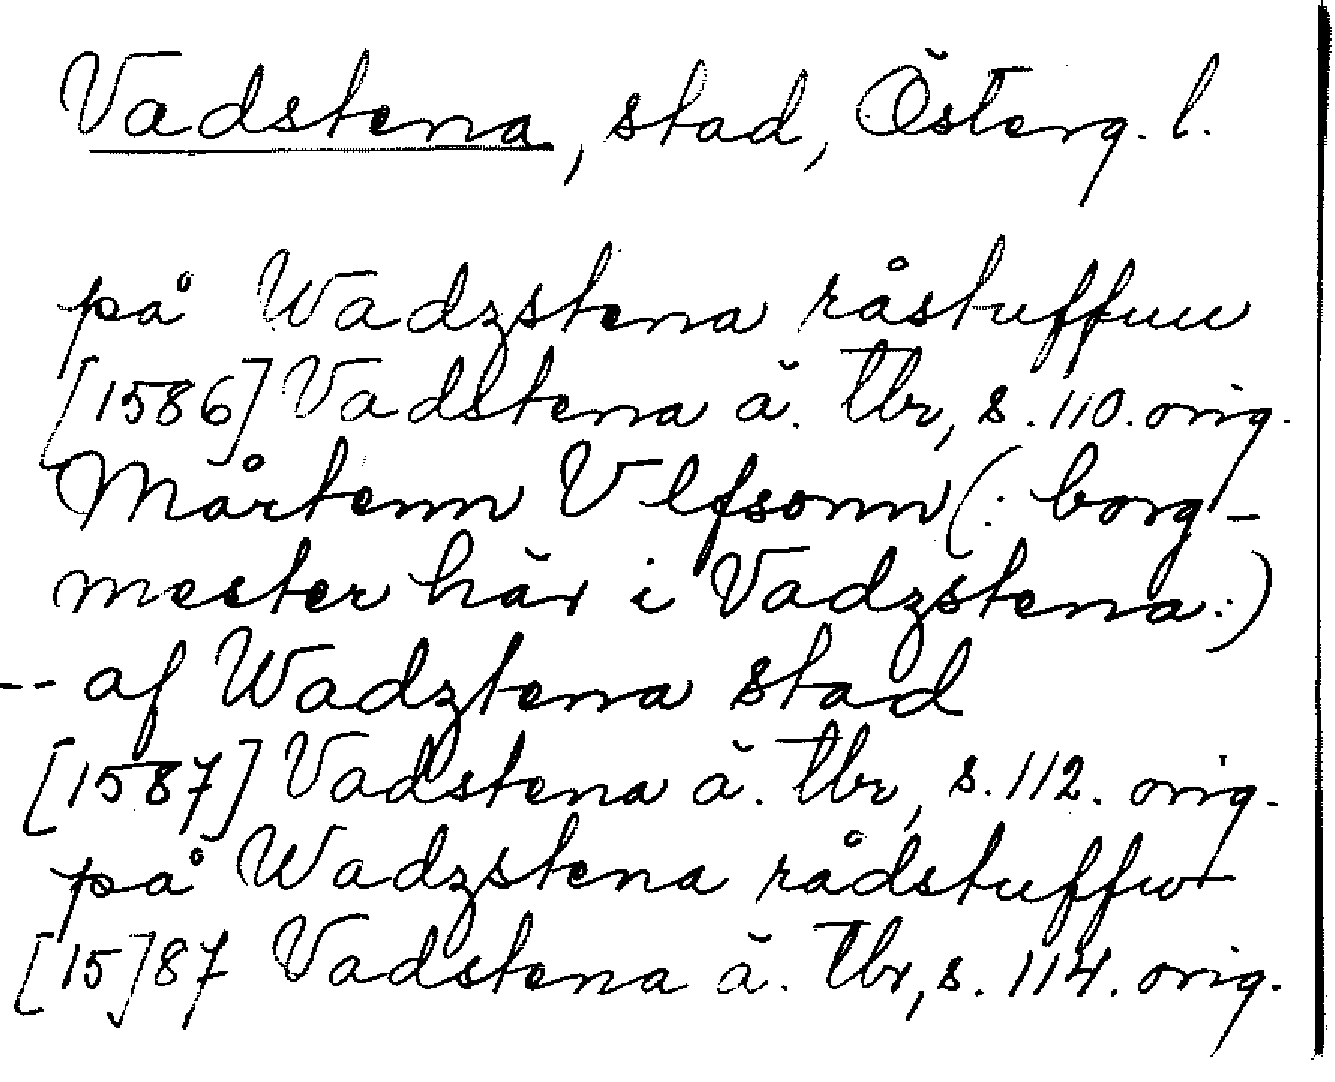 Vadstena, stad, Österg. l.
på Wadzstena råstuffuu
[1586] Vadstena ä. tbr, s. 110. orig.
Mårtenn Vlfsonn (: borg-
mester här i Vadzstena :)
-- af Wadztena stad
[1587] Vadstena ä. tbr, s. 112. orig.
på Wadzstena rådstuffw
[15]87 Vadstena ä. tbr, s. 114. orig.